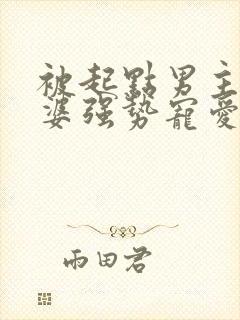 被起點男主
婆强势寵愛
雨田君